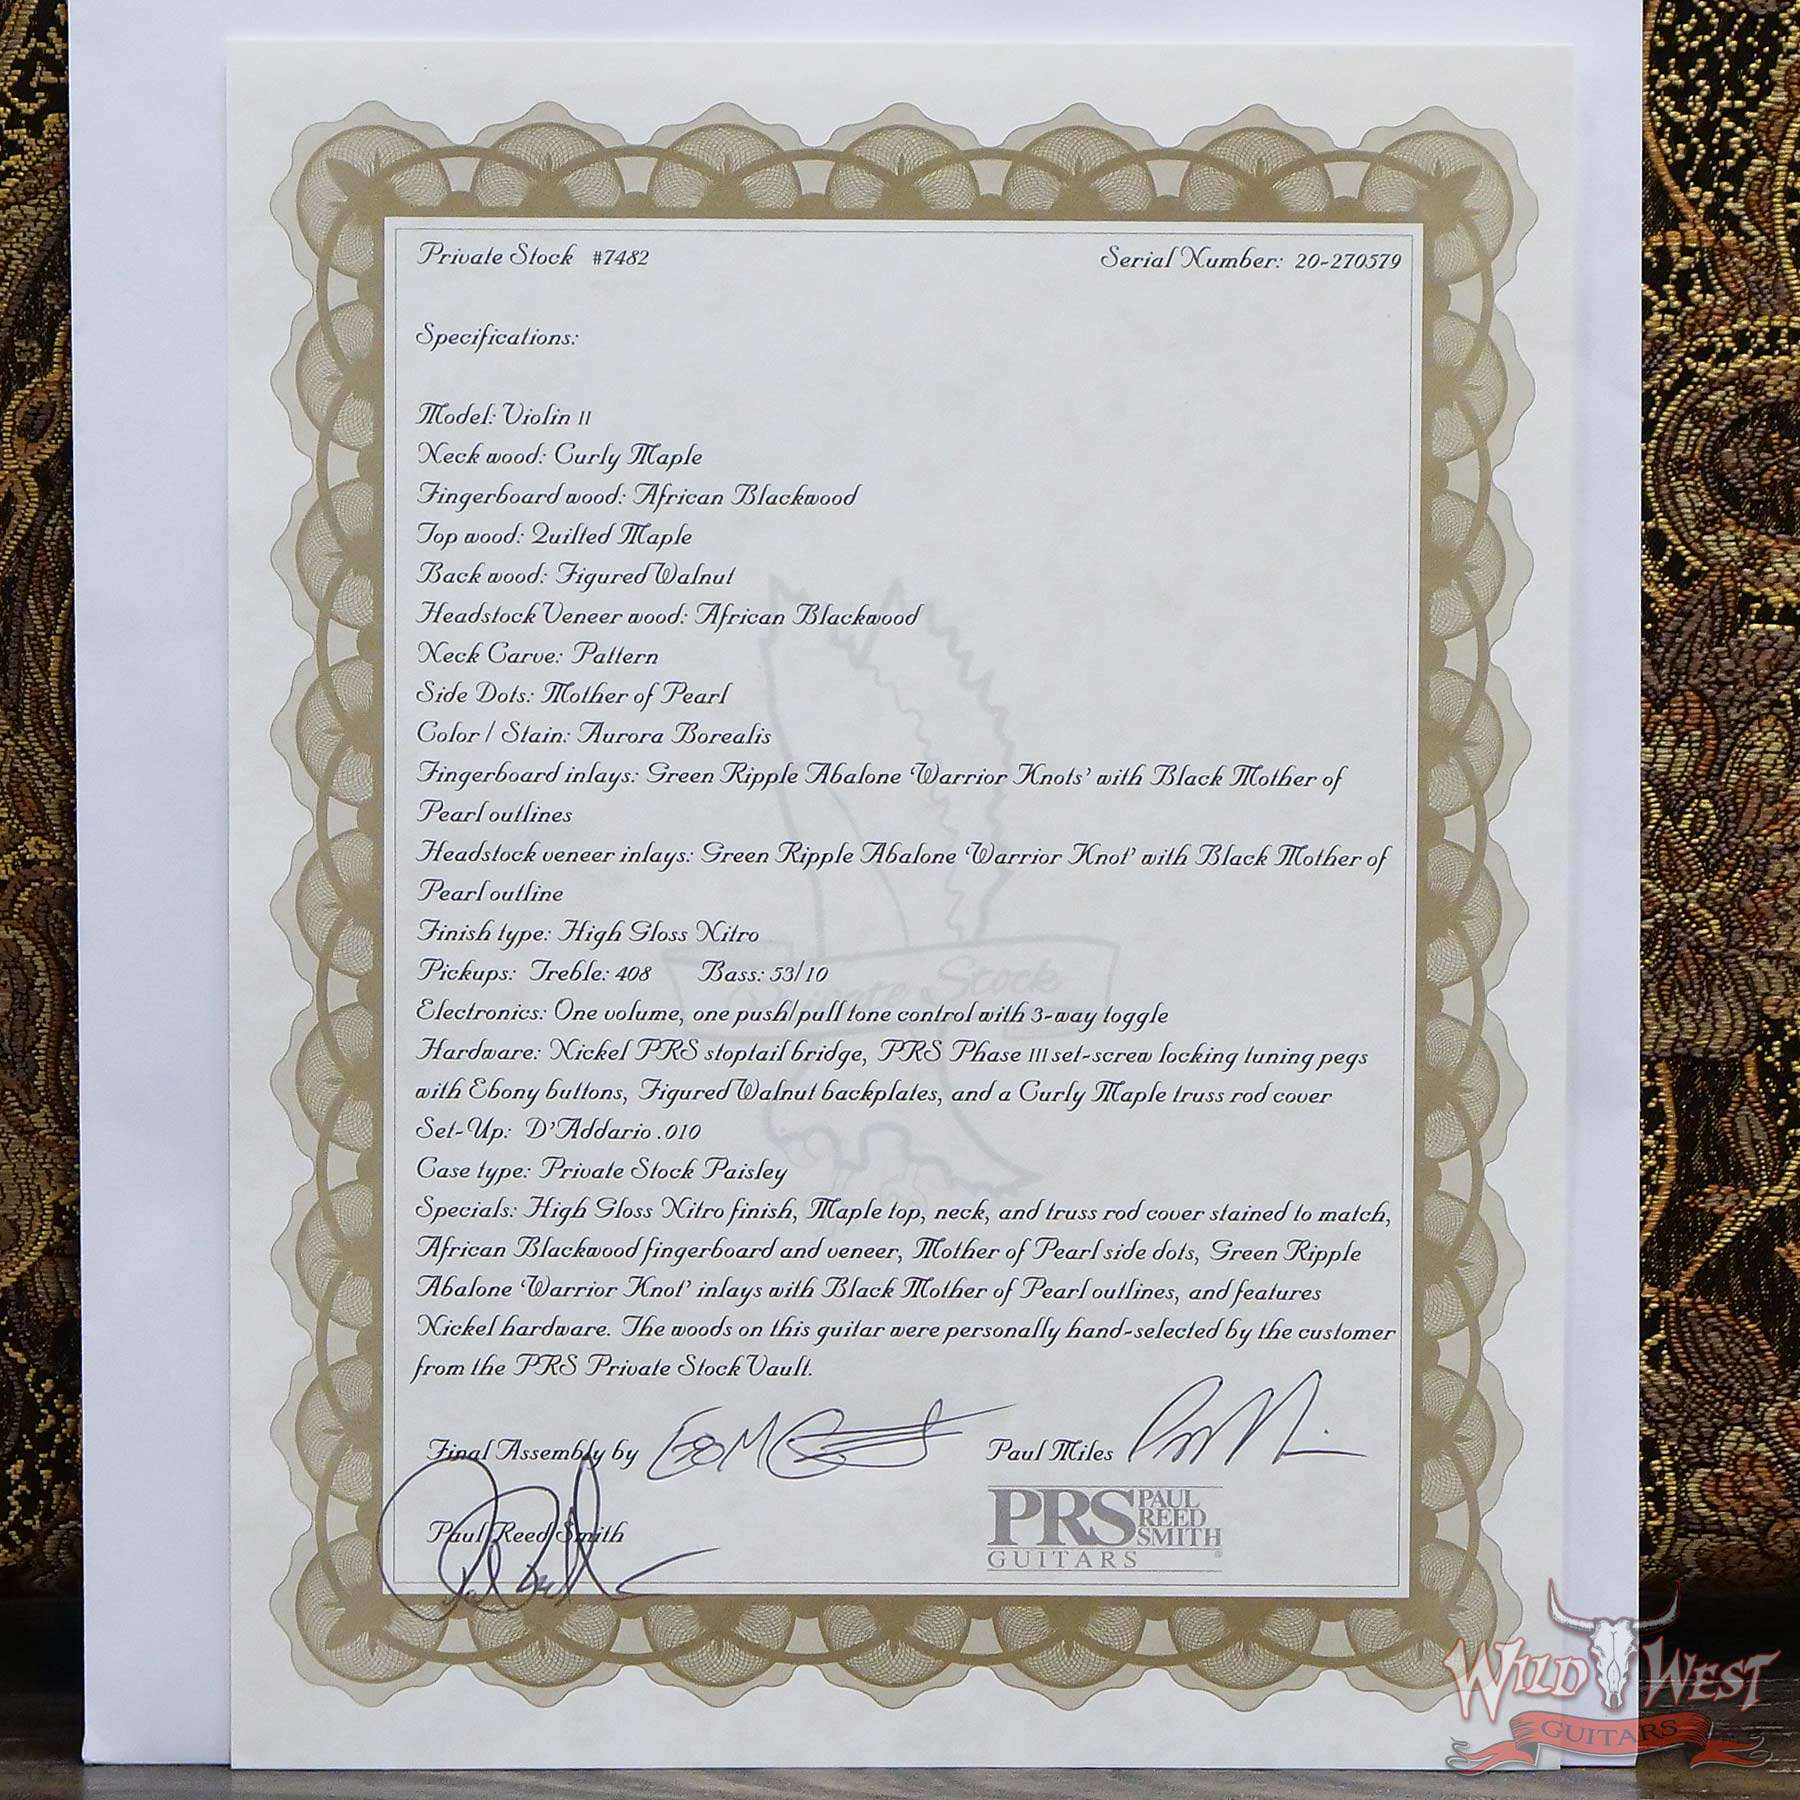 Private Stock #7482 Serial Number: 20-270579
Specifications:
Model: Violin II
Neck wood: Curly Maple
Fingerboard wood: African Blackwood
Top wood: Quilted Maple
Back wood: Figured Walnut
Headstock Veneer wood: African Blackwood
Neck Carve: Pattern
Side Dots: Mother of Pearl
Color / Stain: Aurora Borealis
Fingerboard inlays: Green Ripple Abalone 'Warrior Knots' with Black Mother of
Pearl outlines
Headstock veneer inlays: Green Ripple Abalone 'Warrior Knot' with Black Mother of
Pearl outline
Finish type: High Gloss Nitro
Pickups: Treble: 408 Bass: 53/10
Private Stock
Electronics: One volume, one push/pull tone control with 3-way toggle
Hardware: Nickel PRS stoptail bridge, PRS Phase III set-screw locking tuning pegs
with Ebony buttons, Figured Walnut backplates, and a Curly Maple truss rod cover
Set-Up: D'Addario .010
Case type: Private Stock Paisley
Specials: High Gloss Nitro finish, Maple top, neck, and truss rod cover stained to match,
African Blackwood fingerboard and veneer, Mother of Pearl side dots, Green Ripple
Abalone 'Warrior Knot' inlays with Black Mother of Pearl outlines, and features
Nickel hardware. The woods on this guitar were personally hand-selected by the customer
from the PRS Private Stock Vault.
Final Assembly by Paul Miles
Paul Reed Smith
PRS PAUL REED SMITH
GUITARS
WILD WEST
GUITARS